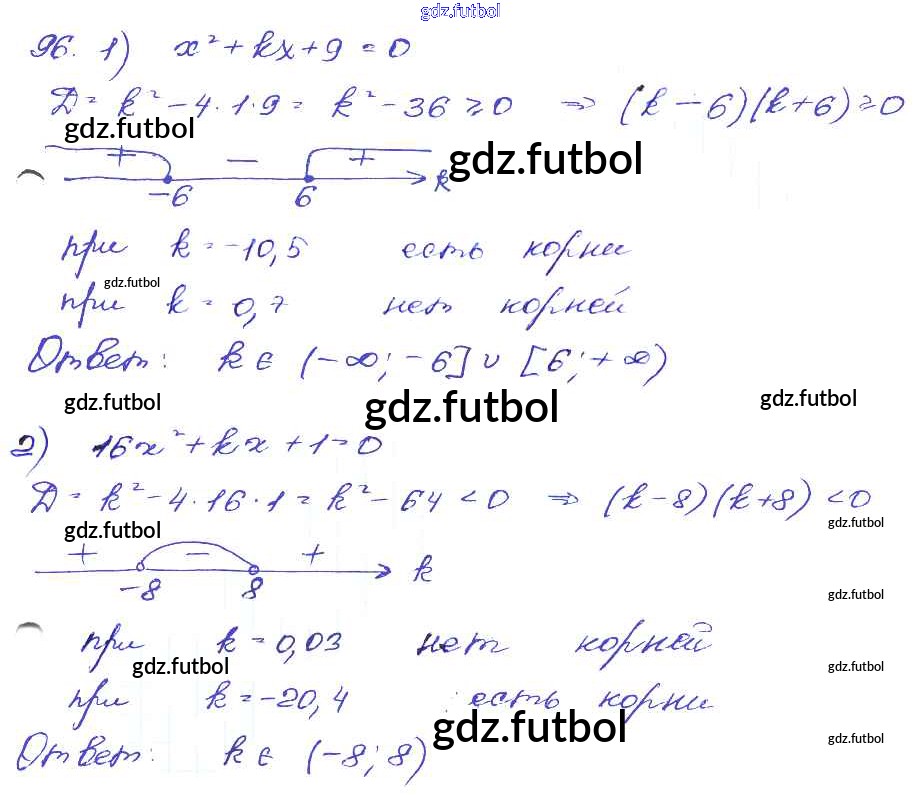 gdz.futbol
96. 1) x² + kx + 9 = 0
D = k² - 4·1·9 = k² - 36 ⩾ 0 ⇒ (k - 6)(k + 6) ⩾ 0
gdz.futbol
+ − + gdz.futbol
-6 6 k
при k = -10,5 есть корни
gdz.futbol
при k = 0,7 нет корней
Ответ: k ∈ (-∞; -6] ∪ [6; +∞)
gdz.futbol gdz.futbol gdz.futbol
2) 16x² + kx + 1 = 0
D = k² - 4·16·1 = k² - 64 < 0 ⇒ (k - 8)(k + 8) < 0
gdz.futbol gdz.futbol
+ − +
-8 8 k
gdz.futbol
при k = 0,03 нет корней
gdz.futbol gdz.futbol
при k = -20,4 есть корни
gdz.futbol gdz.futbol
Ответ: k ∈ (-8; 8)